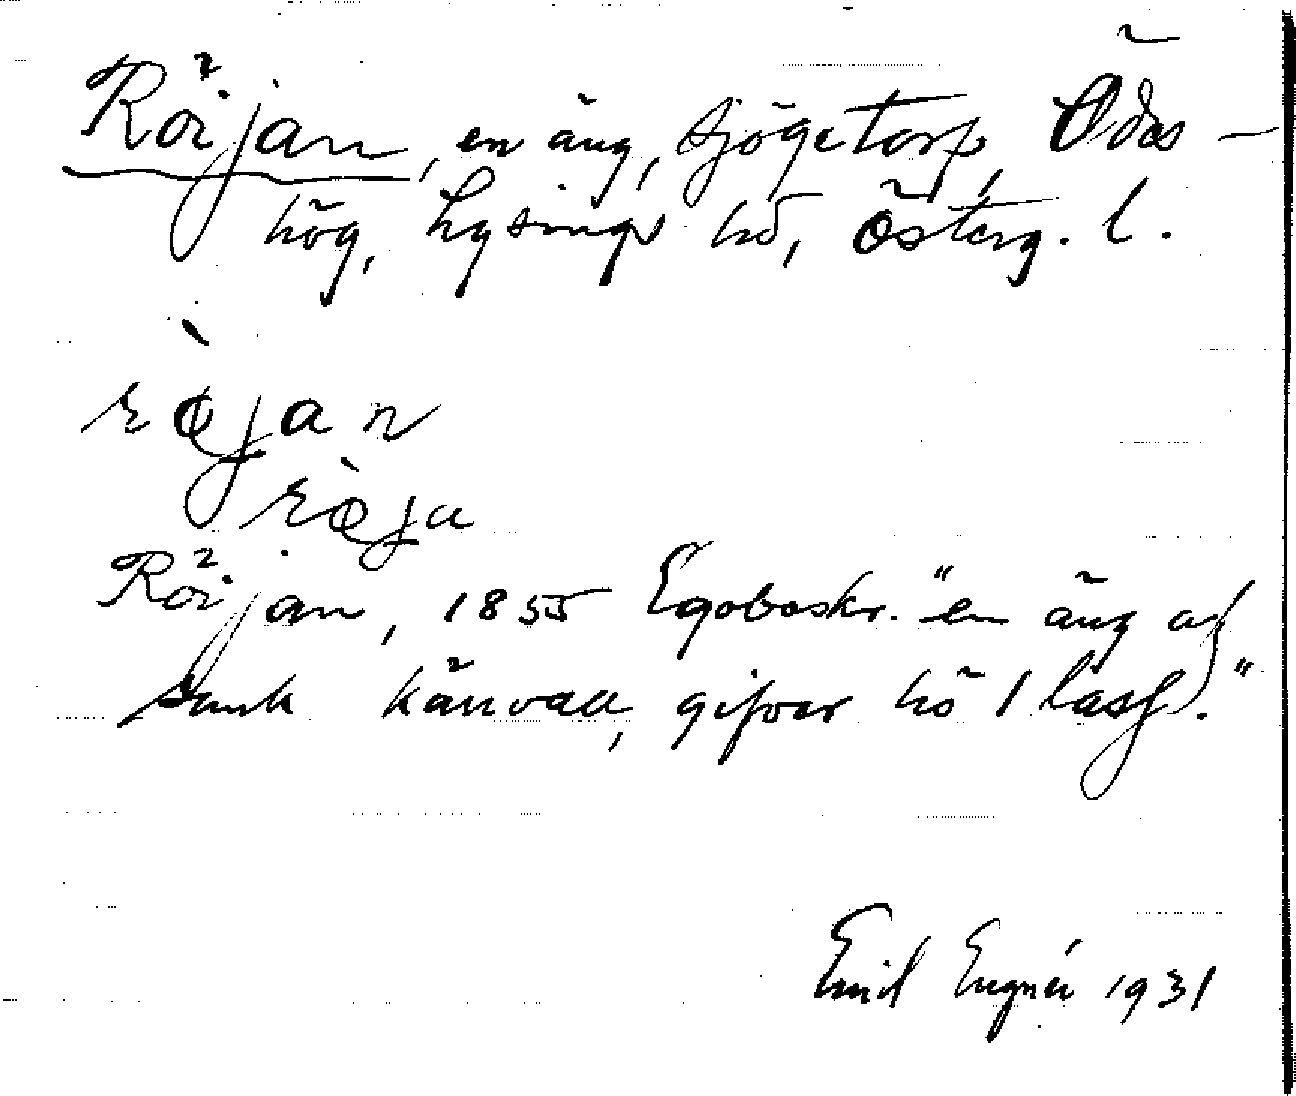 Röijan, en äng, Sjögetorp, Ödes-
hög, Lysings hd, Österg. l.
rø̀jan
rø̀ja
Röijan, 1855 Egobeskr. "en äng af
sank kärrvall, gifver hö 1 lass."
Emil Engnér 1931